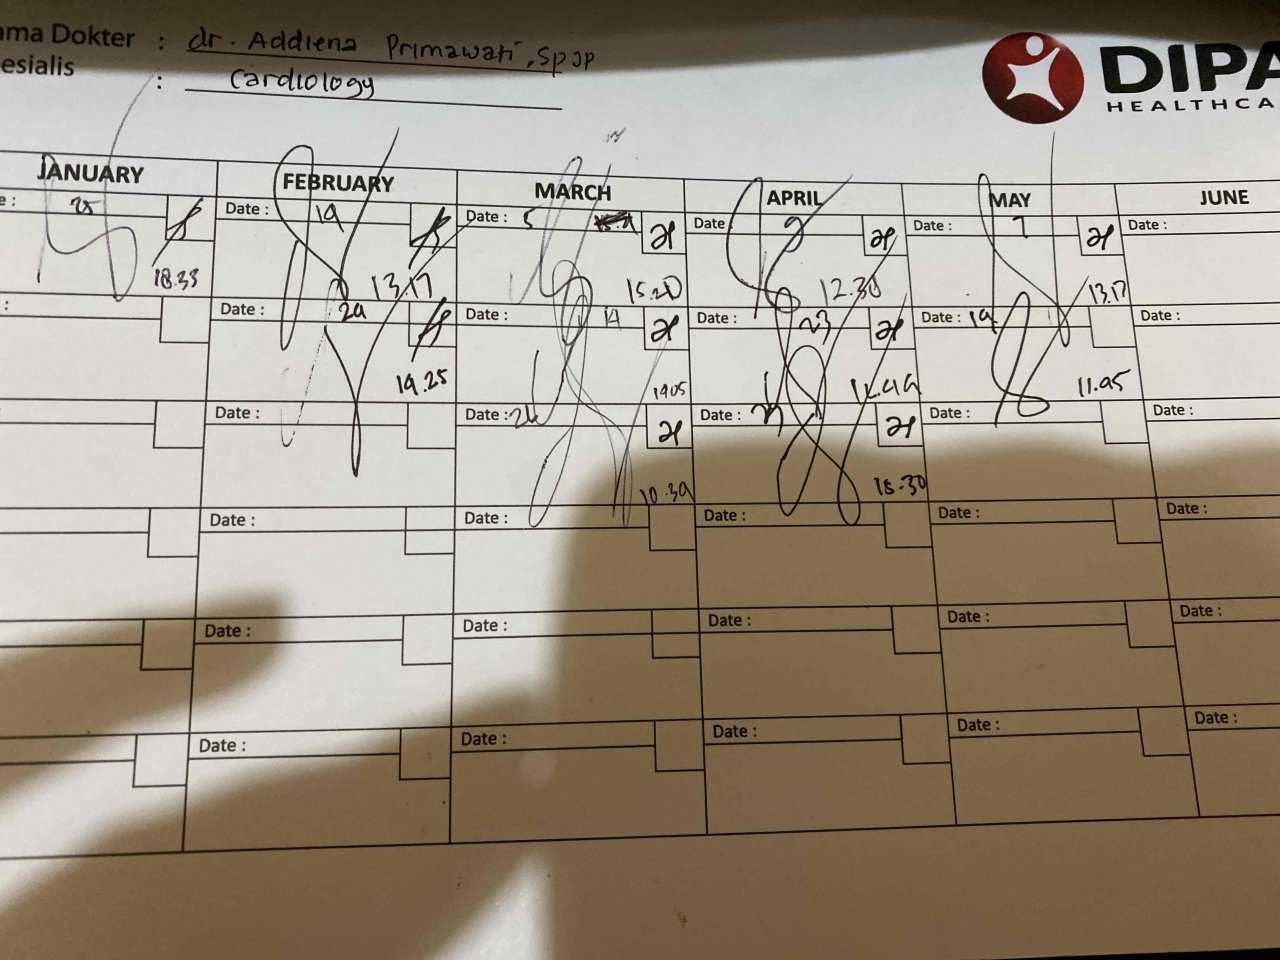 ama Dokter : dr. Addiena Primawati, SpJP
esialis : Cardiology
DIPA
HEALTHCA
JANUARY FEBRUARY MARCH APRIL MAY JUNE
e: 25 Date : 19 Date : 5 Date 9 Date : 7 Date :
18.33 13.17 15.20 12.30 13.17
: Date : 29 Date : 19 Date : 23 Date : 19 Date :
19.25 1905 11.95
: Date : Date : 26 Date : Date : Date :
10.39 18.30
Date : Date : Date : Date : Date :
Date : Date : Date : Date : Date :
Date : Date : Date : Date : Date :